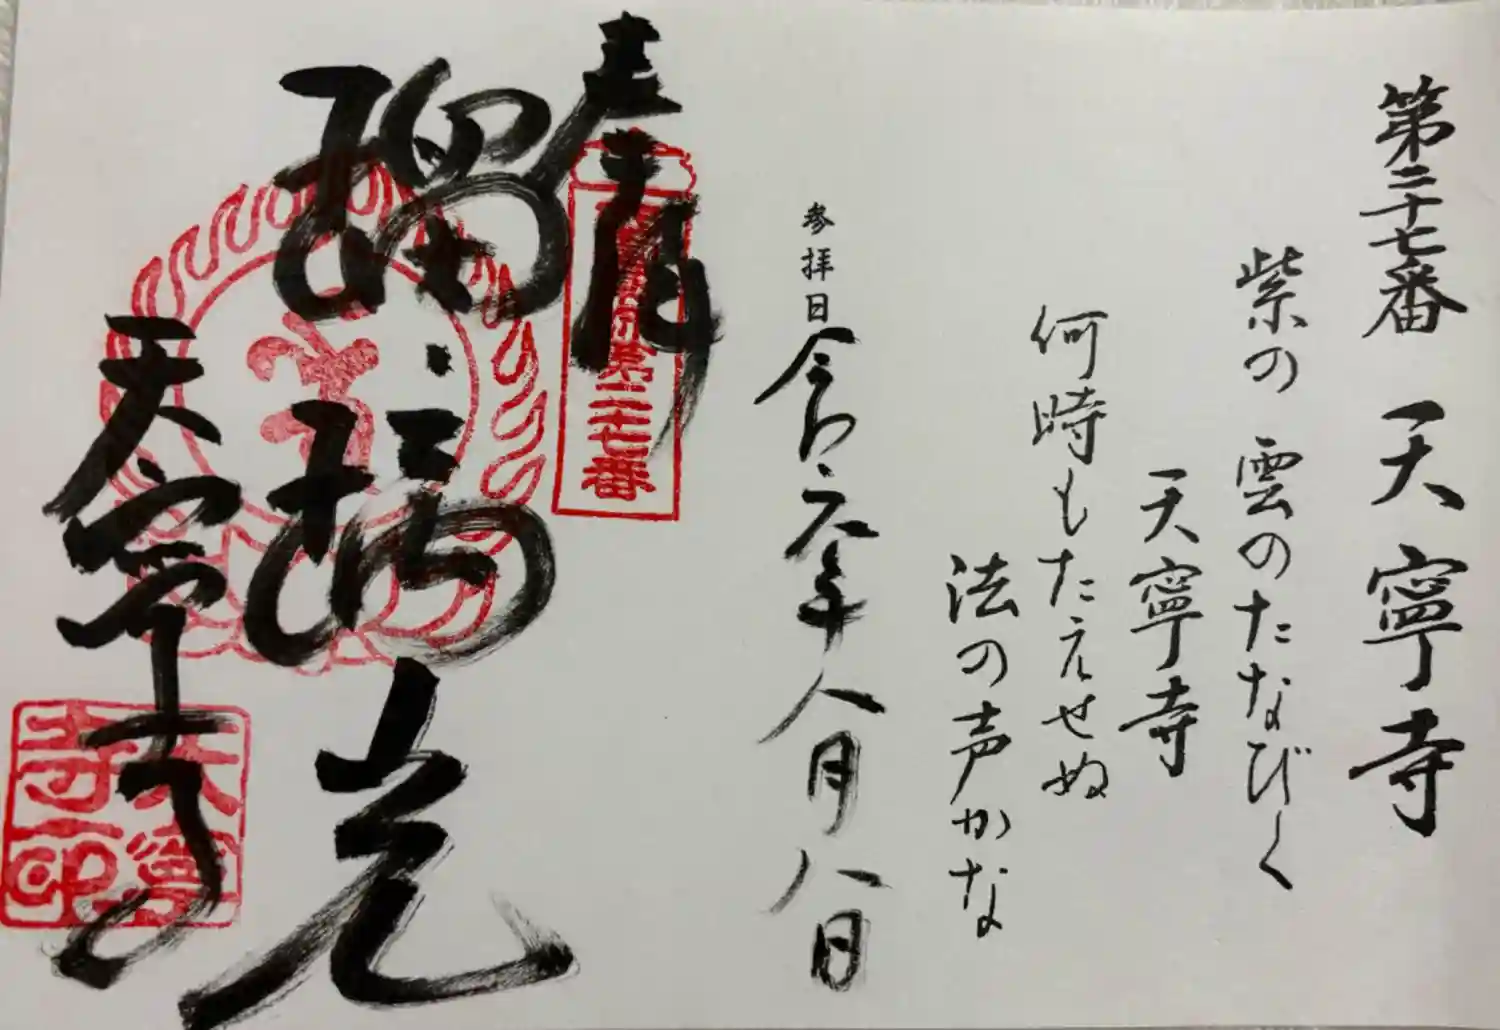 第二十七番 天寧寺
紫の雲のたなびく
天寧寺
何時もたえせぬ
法の声かな
参拝日
令和六年八月八日
奉拝
第二十七番
瑠璃光
天寧寺
天寧
寺印